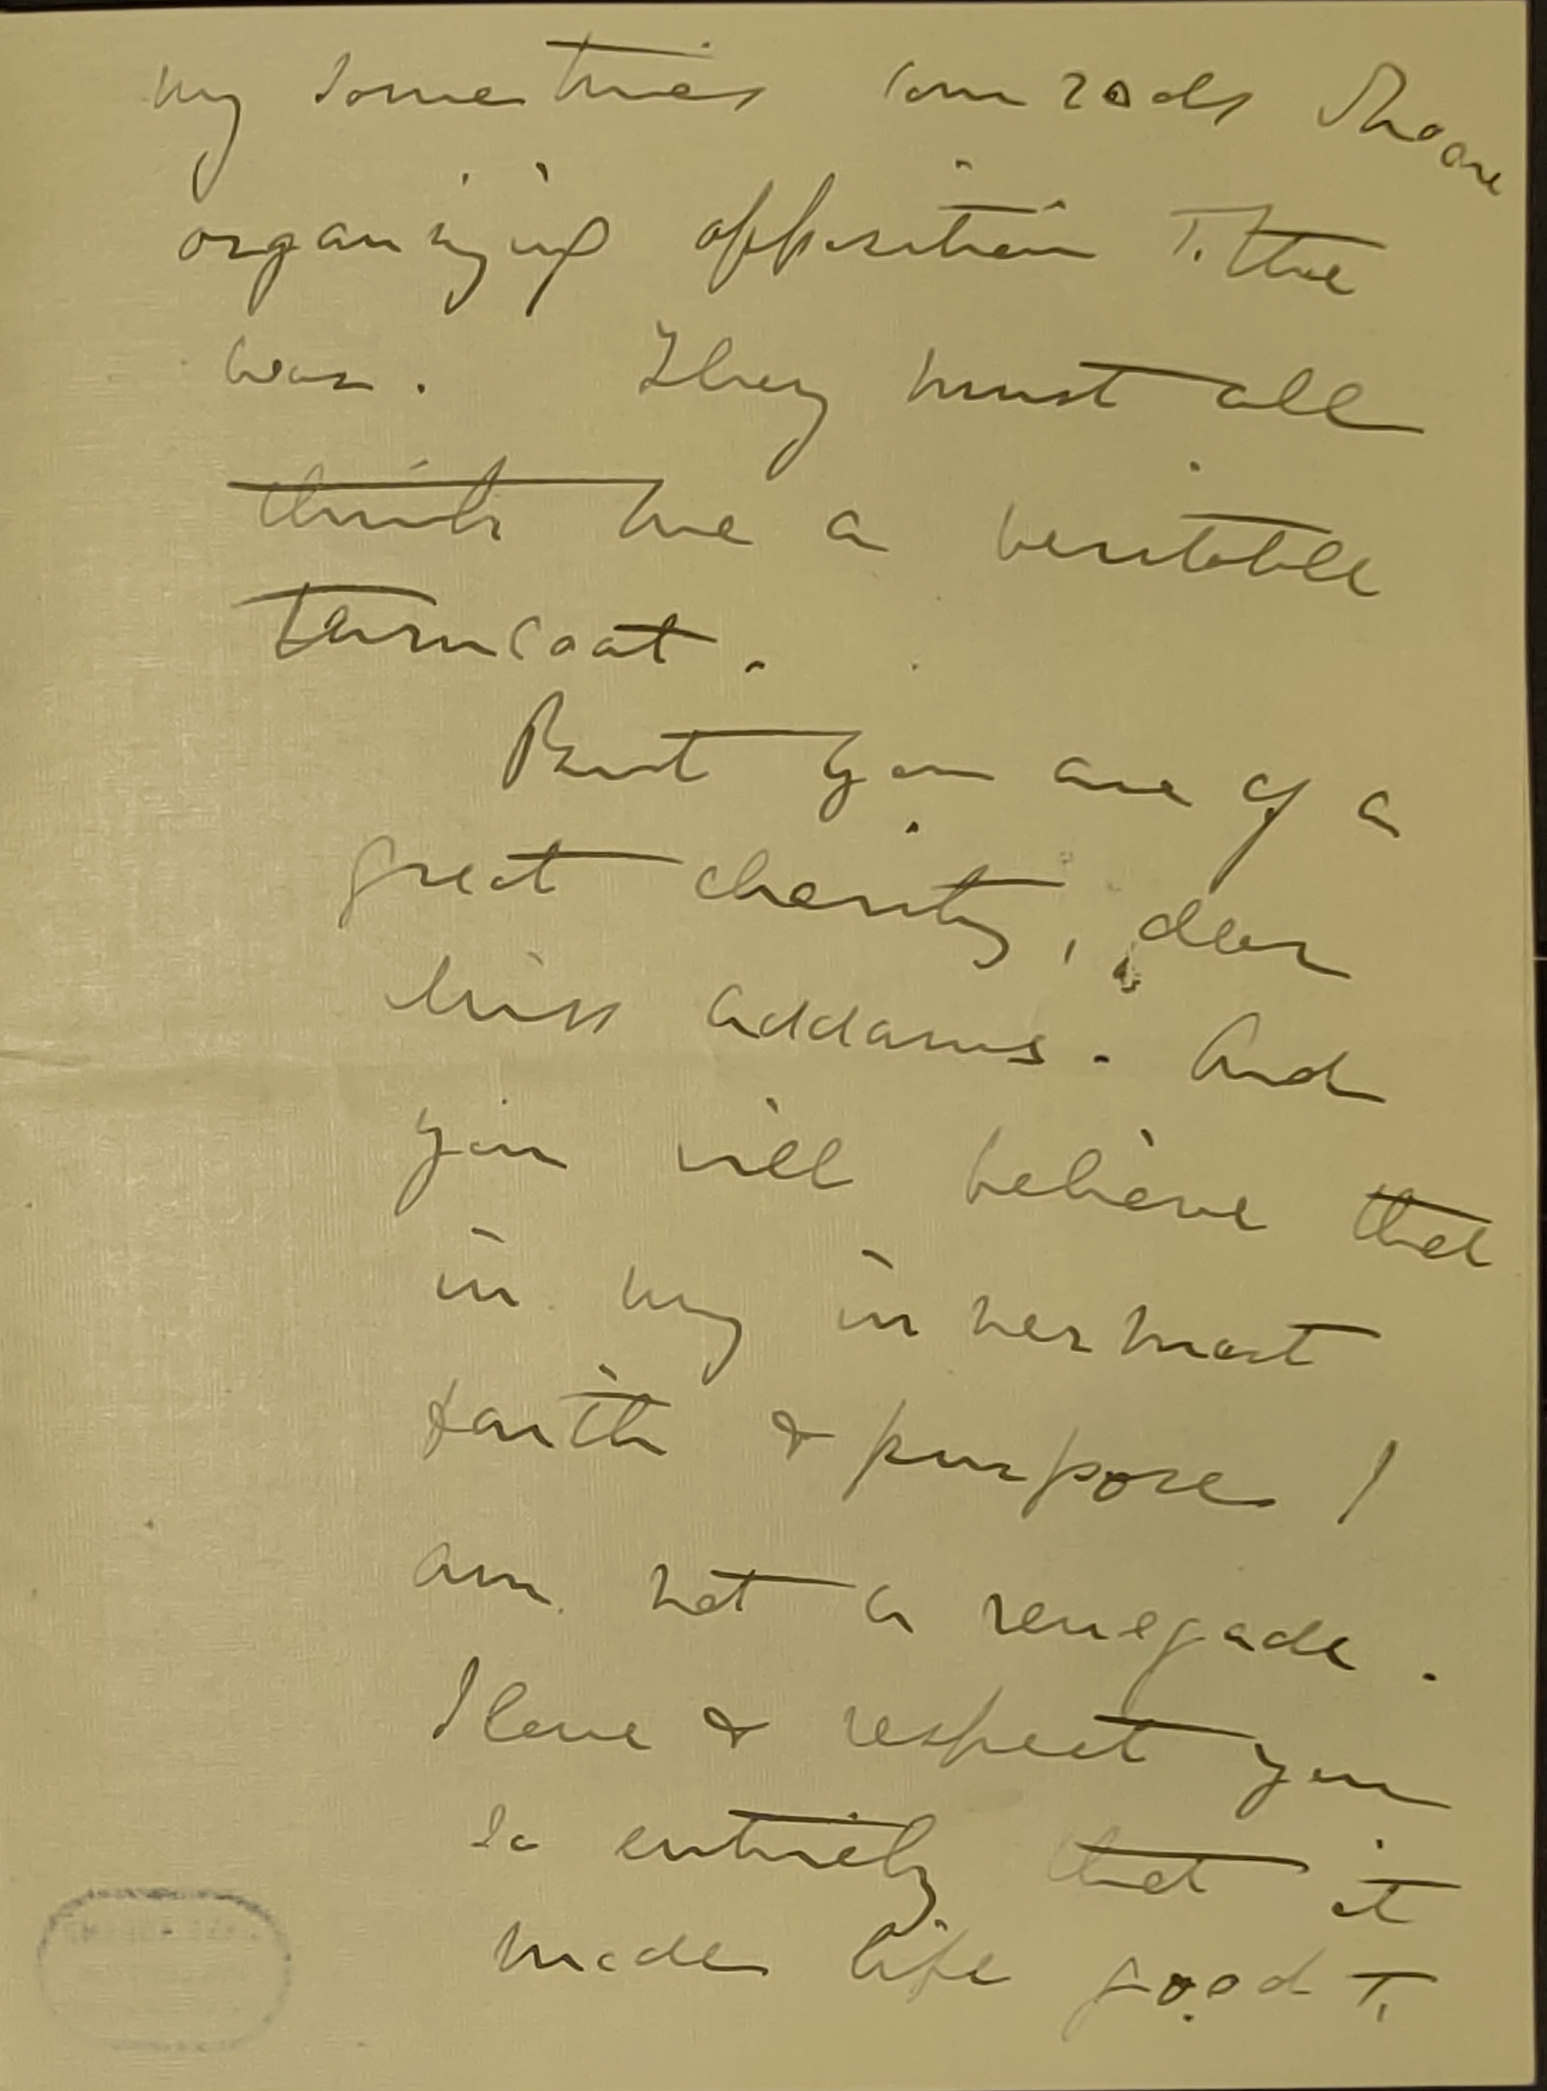 my sometimes comrads who are
organizing opposition to the
war. They must all
think me a veritable
turncoat.
But you are of a
great charity, dear
Miss Addams. And
you will believe that
in my innermost
faith & purpose I
am not a renegade.
I love & respect you
so entirely that it
makes life good to